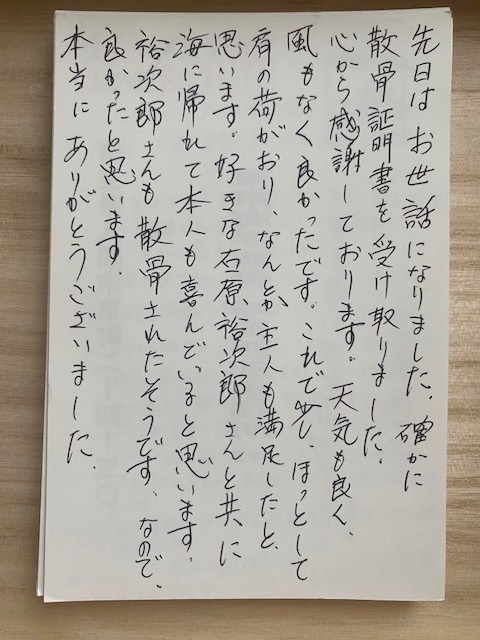 先日は お世話になりました。確かに
散骨証明書を受け取りました。
心から感謝しております。天気も良く、
風もなく良かったです。これで少し、ほっとして
肩の荷がおり、なんとか主人も満足したと、
思います。好きな石原裕次郎さんと共に
海に帰れて本人も喜んでいると思います。
裕次郎さんも散骨されたそうです、なので、
良かったと思います。
本当に ありがとうございました。